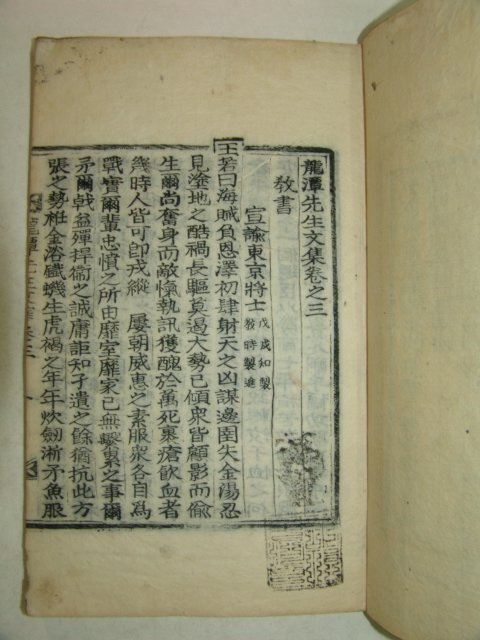 龍潭先生文集卷之三
敎書
宣諭東京將士 戊戌知製敎時製進
王若曰海賊負恩澤初肆射天之凶謀邊圉失金湯忍
見塗地之酷禍長驅莫遏大勢已傾衆皆顧影而偸
生爾尚奮身而敵愾執訊獲醜於萬死裹瘡飮血者
幾時人皆可卽戎縱 屢朝威惠之素服衆各自爲
戰實爾輩忠憤之所由靡室靡家已無繫累之事爾
矛爾戟益殫捍衞之誠庸詎知孑遺之餘猶抗此方
張之勢袵金浴鐵蟣生虎褐之年年炊劍淅矛魚服